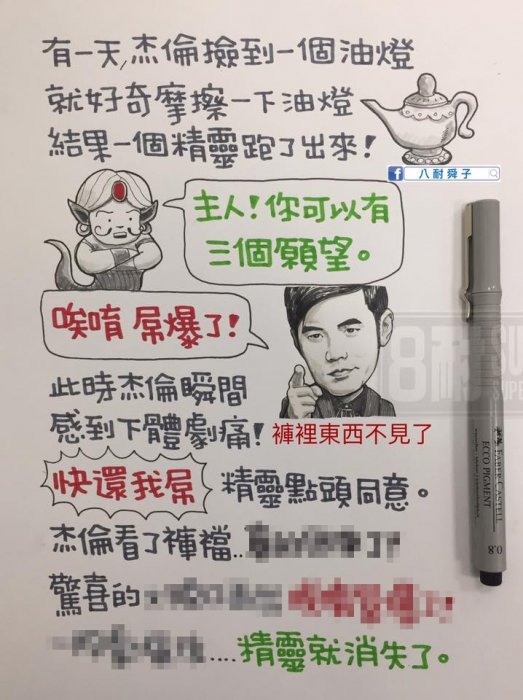 有一天,杰倫撿到一個油燈
就好奇摩擦一下油燈
結果一個精靈跑了出來!
f 八耐舜子
主人!你可以有
三個願望。
唉唷 屌爆了!
此時杰倫瞬間
感到下體劇痛!
褲裡東西不見了
快還我屌
精靈點頭同意。
杰倫看了褲襠..
驚喜的
....精靈就消失了。
FABER-CASTELL
ECCO PIGMENT
0.8
8耐 SU
SUPE